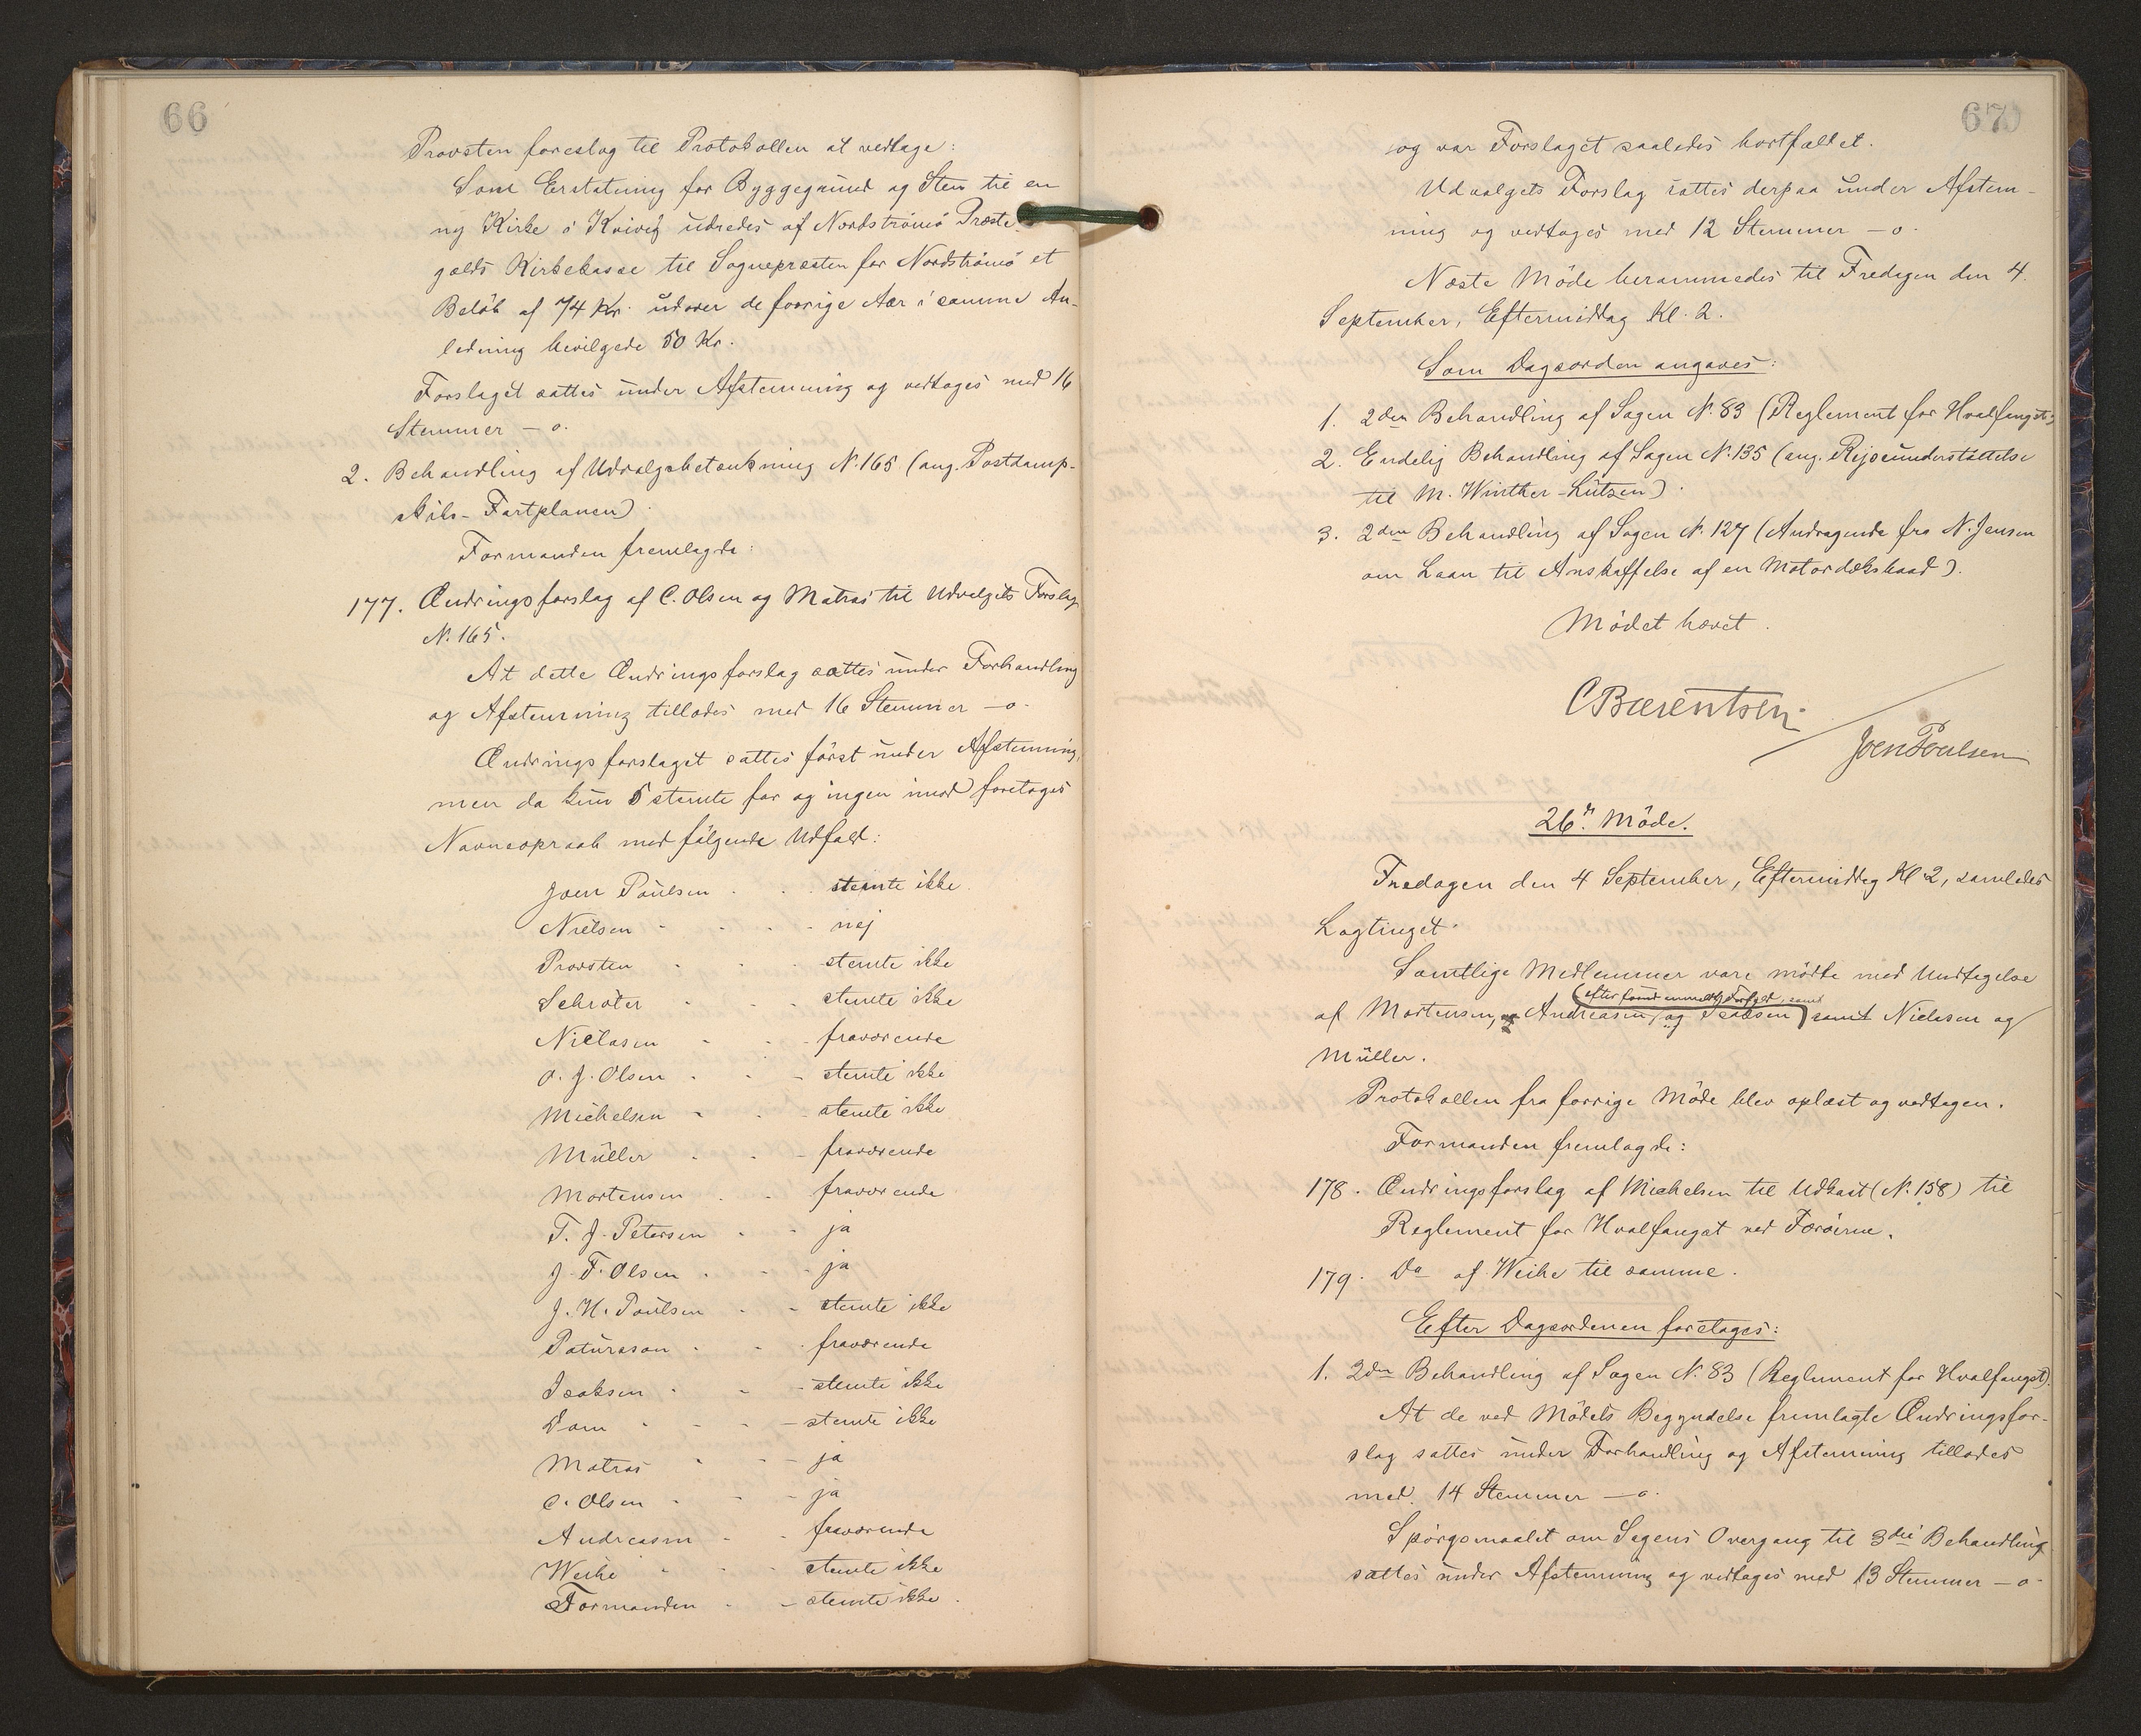 66
Provsten foreslog til Protokollen at vedtage:
Som Erstatning for Byggegrund og Sten til en
ny Kirke i Kvivig udredes af Nordströmö Præste-
gælds Kirkekasse til Sognepræsten for Nordströmö et
Belöb af 74 Kr. udover de forrige Aar i samme An-
ledning bevilgede 50 Kr.
Forslaget sattes under Afstemning og vedtoges med 16
Stemmer – o.
2. Behandling af Udvalgsbetænkning N. 165 (ang. Postdamp-
skibs-Fartplanen).
Formanden fremlagde:
177. Ændringsforslag af C. Olsen og Matras til Udvalgets Forslag
N. 165.
At dette Ændringsforslag sattes under Forhandling
og Afstemning tillodes med 16 Stemmer – o.
Ændringsforslaget sattes först under Afstemning,
men da kun 5 stemte for og ingen imod foretoges
Navneopraab med fölgende Udfald:
Joen Poulsen - - stemte ikke.
Nielsen - - - - nej
Provsten - - - stemte ikke
Schröter - - - stemte ikke
Niclasen - - - fraværende
O. J. Olsen - - - stemte ikke
Michelsen - - - stemte ikke
Müller - - - fraværende
Mortensen - - fraværende
T. J. Petersen - - ja
J. F. Olsen - - - ja
J. H. Poulsen - - stemte ikke
Patursson - - - fraværende
Isaksen - - - stemte ikke
Dam - - - - stemte ikke
Matras - - - ja
C. Olsen - - - ja
Andreasen - - fraværende
Weihe - - - stemte ikke
Formanden - - stemte ikke.
67
og var Forslaget saaledes bortfaldet.
Udvalgets Forslag sattes derpaa under Afstem-
ning og vedtoges med 12 Stemmer – o.
Næste Möde berammedes til Fredagen den 4.
September, Eftermiddag Kl. 2.
Som Dagsorden angaves:
1. 2den Behandling af Sagen N. 83 (Reglement for Hvalfangst)
2. Endelig Behandling af Sagen N. 135 (ang. Rejseunderstöttelse
til M. Winther-Lützen).
3. 2den Behandling af Sagen N. 127 (Andragende fra N. Jensen
om Laan til Anskaffelse af en Motordæksbaad).
Mödet hævet.
C Bærentsen
Joen Poulsen
26de Möde.
Fredagen den 4 September, Eftermiddag Kl. 2, samledes
Lagtinget.
Samtlige Medlemmer vare mödte med Undtagelse
(efter forud anmeldt Forfald, samt
af Mortensen, og Andreasen, og Isaksen) samt Niclasen og
Müller.
Protokollen fra forrige Möde blev oplæst og vedtagen.
Formanden fremlagde:
178. Ændringsforslag af Michelsen til Udkast (N. 158) til
Reglement for Hvalfangst ved Færöerne.
179. Do af Weihe til samme.
Efter Dagsordenen foretoges:
1. 2den Behandling af Sagen N. 83 (Reglement for Hvalfangst).
At de ved Mödets Begyndelse fremlagte Ændringsfor-
slag sattes under Forhandling og Afstemning tillodes
med 14 Stemmer – o.
Spörgsmaalet om Sagens Overgang til 3die Behandling
sattes under Afstemning og vedtoges med 13 Stemmer – o.